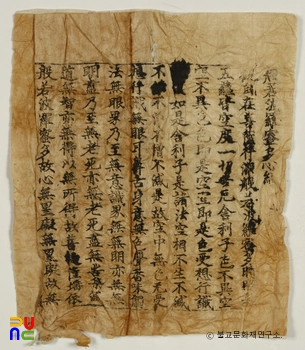 般若波羅蜜多心經
觀自在菩薩行深般若波羅蜜多時
五蘊皆空度一切苦厄舍利子色不異空
空不異色色即是空空即是色受想行識
如是舍利子是諸法空相不生不滅
不不增不減是故空中無色無受
想行識無眼耳鼻舌身意無色聲香味觸
法無眼界乃至無意識界無無明亦無無
明盡乃至無老死亦無老死盡無苦集滅
道無智亦無得以無所得故菩提薩埵依
般若波羅蜜多故心無罣礙無罣礙故無
ⓒ 불교문화재연구소